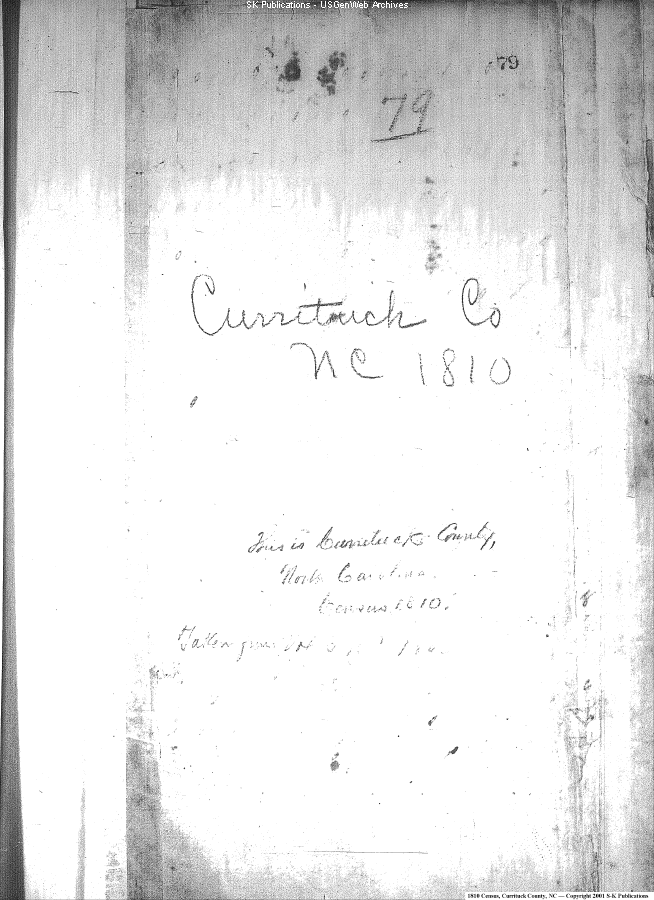 SK Publications - USGenWeb Archives
79
79
Currituck Co
NC 1810
This is Currituck County,
North Carolina.
Census 1810.
Taken from
1810 Census, Currituck County, NC — Copyright 2001 S-K Publications